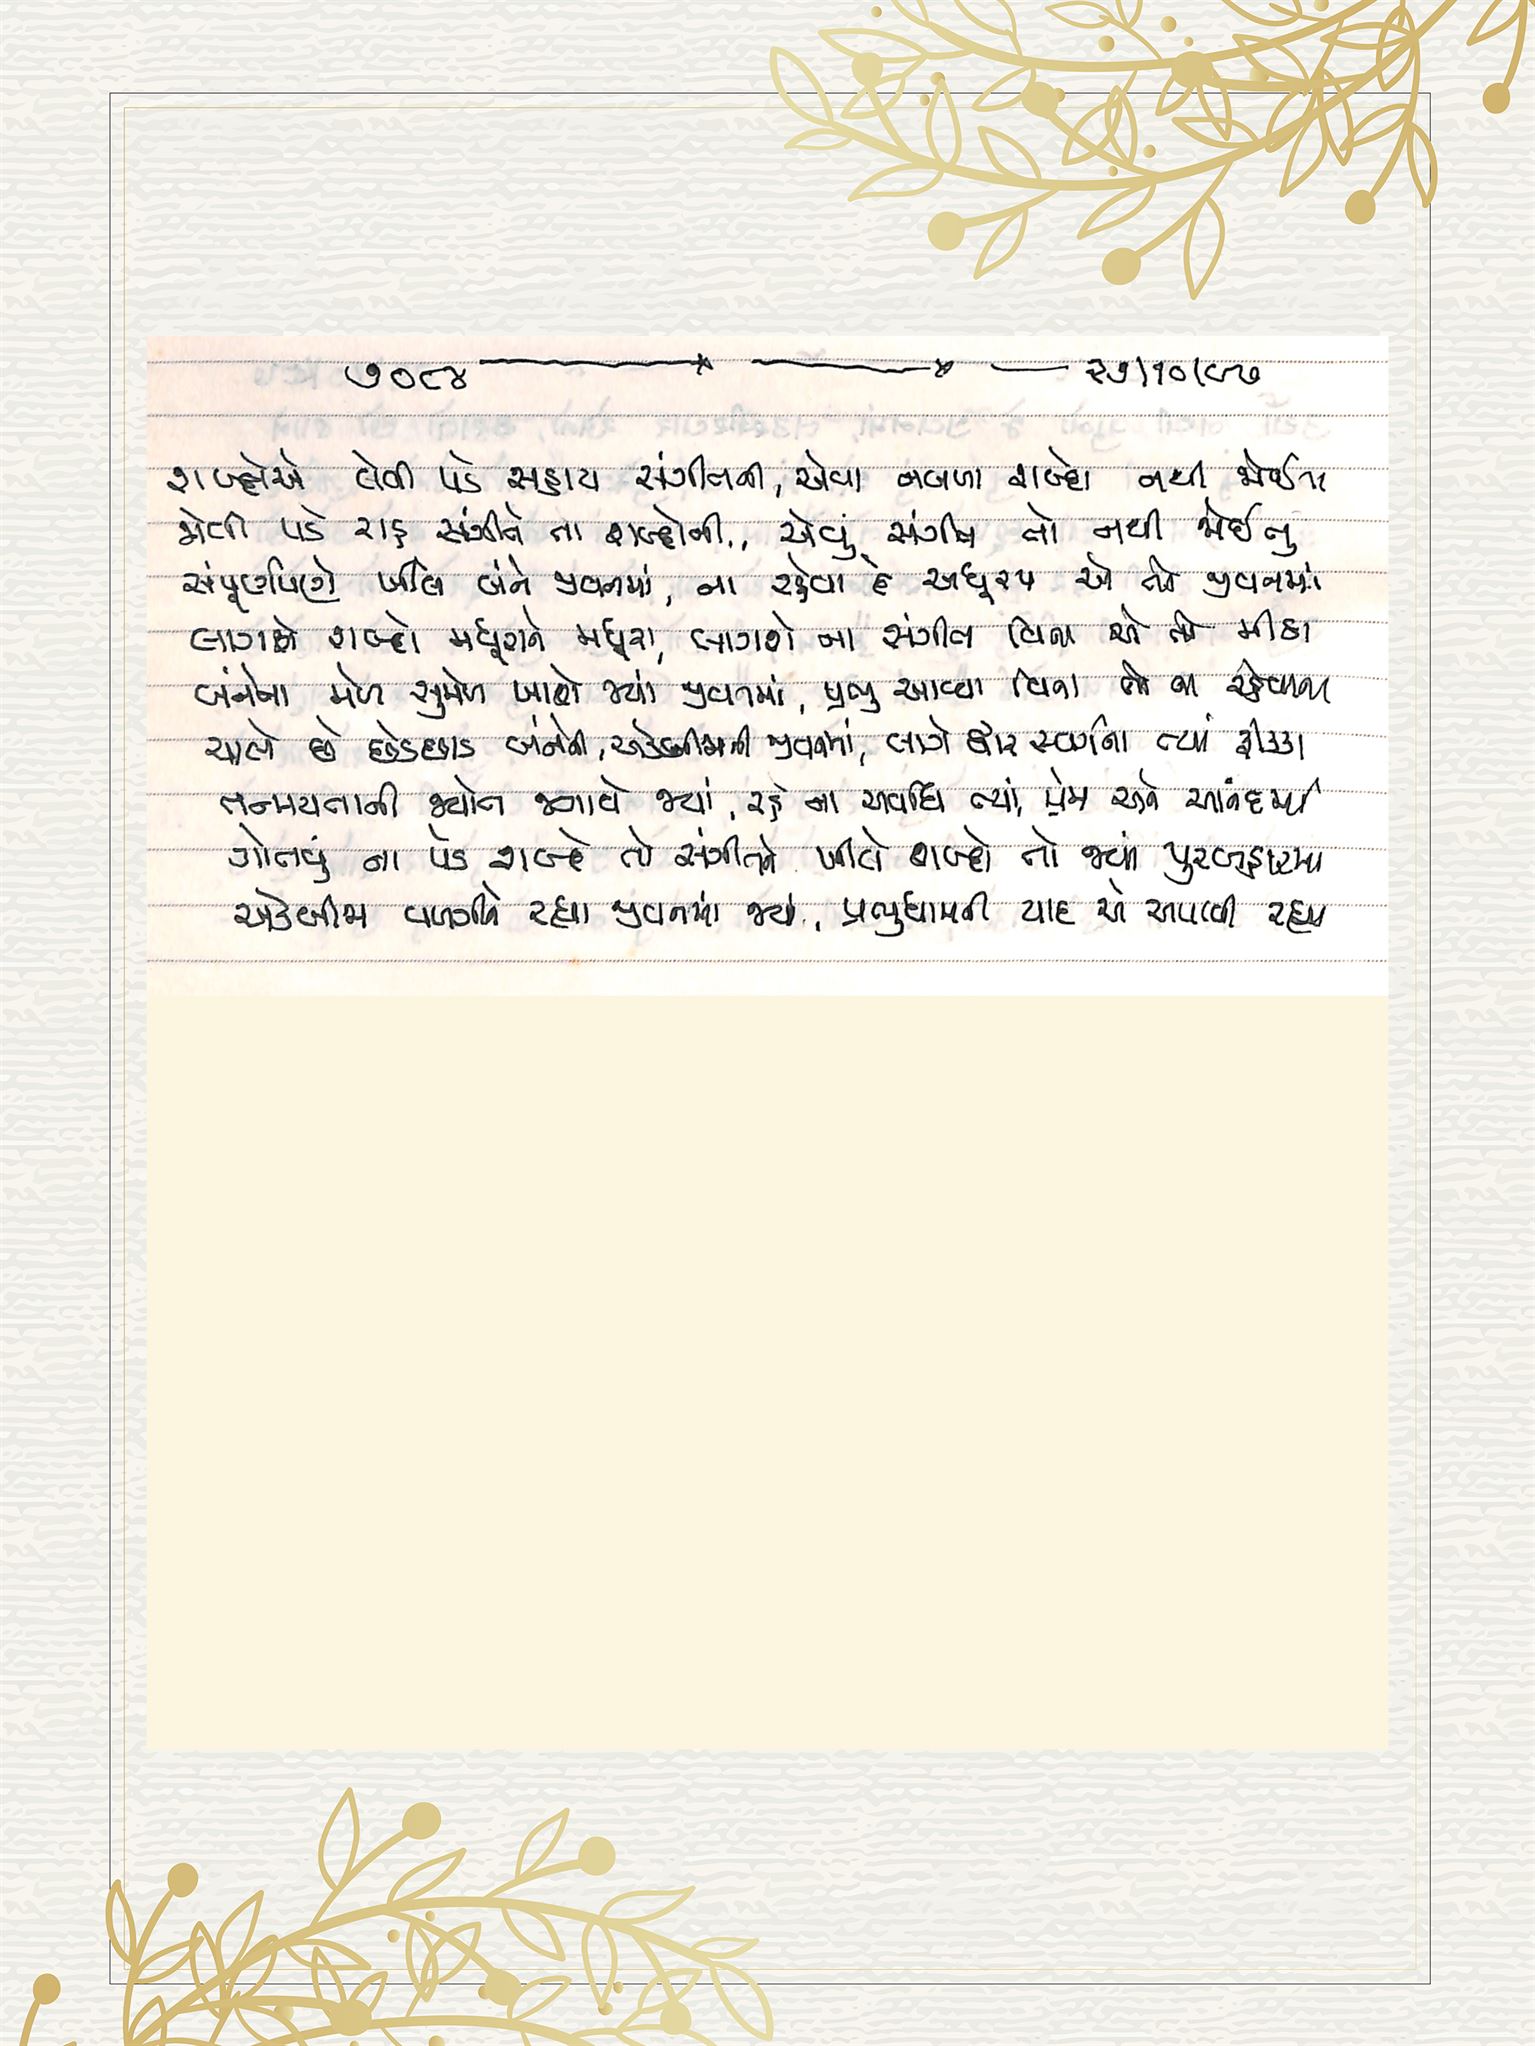 ૭૦૮૪ ૨૭/૧૦/૯૭
શબ્દોએ લેવી પડે સહાય સંગીતની, એવા નબળા શબ્દો નથી જોઈતા
જોવી પડે રાહ સંગીતે તા શબ્દોની., એવું સંગીત તો નથી જોઈતું
સંપૂર્ણપણે ખીલે બંને જીવનમાં, ના રહેવા દે અધૂરપ એ તો જીવનમાં
લાગશે શબ્દો મધુરાને મધુરા, લાગશે ના સંગીત વિના એ તો મીઠા
બંનેના મેળ સુમેળ ખાશે જ્યાં જીવનમાં, પ્રભુ આવ્યા વિના તો ના રહેવાના
ચાલે છે છેડછાડ બંનેની, એકબીજાની જીવનમાં, લાગે દ્વાર સ્વર્ગના ત્યાં ફીક્કા
તન્મયતાની જ્યોત જગાવે જ્યાં, રહે ના અવધિ ત્યાં, પ્રેમ અને આનંદમાં
ગોતવું ના પડે શબ્દે તો સંગીતને ખીલે શબ્દો તો જ્યાં પુરબહારમાં
એકબીજા વળગીને રહ્યા જીવનમાં જ્યાં., પ્રભુધામની યાદ એ અપાવી રહ્યા